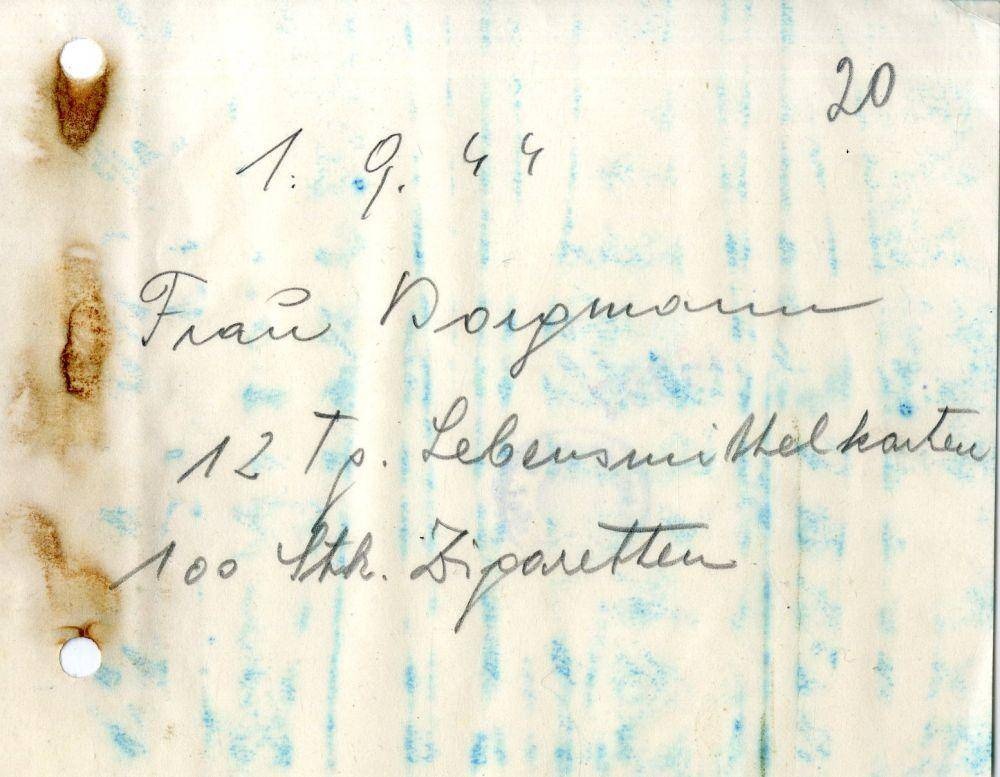 20
1. 9. 44
Frau Borgmann
12 Tg. Lebensmittelkarten
100 Stk. Zigaretten